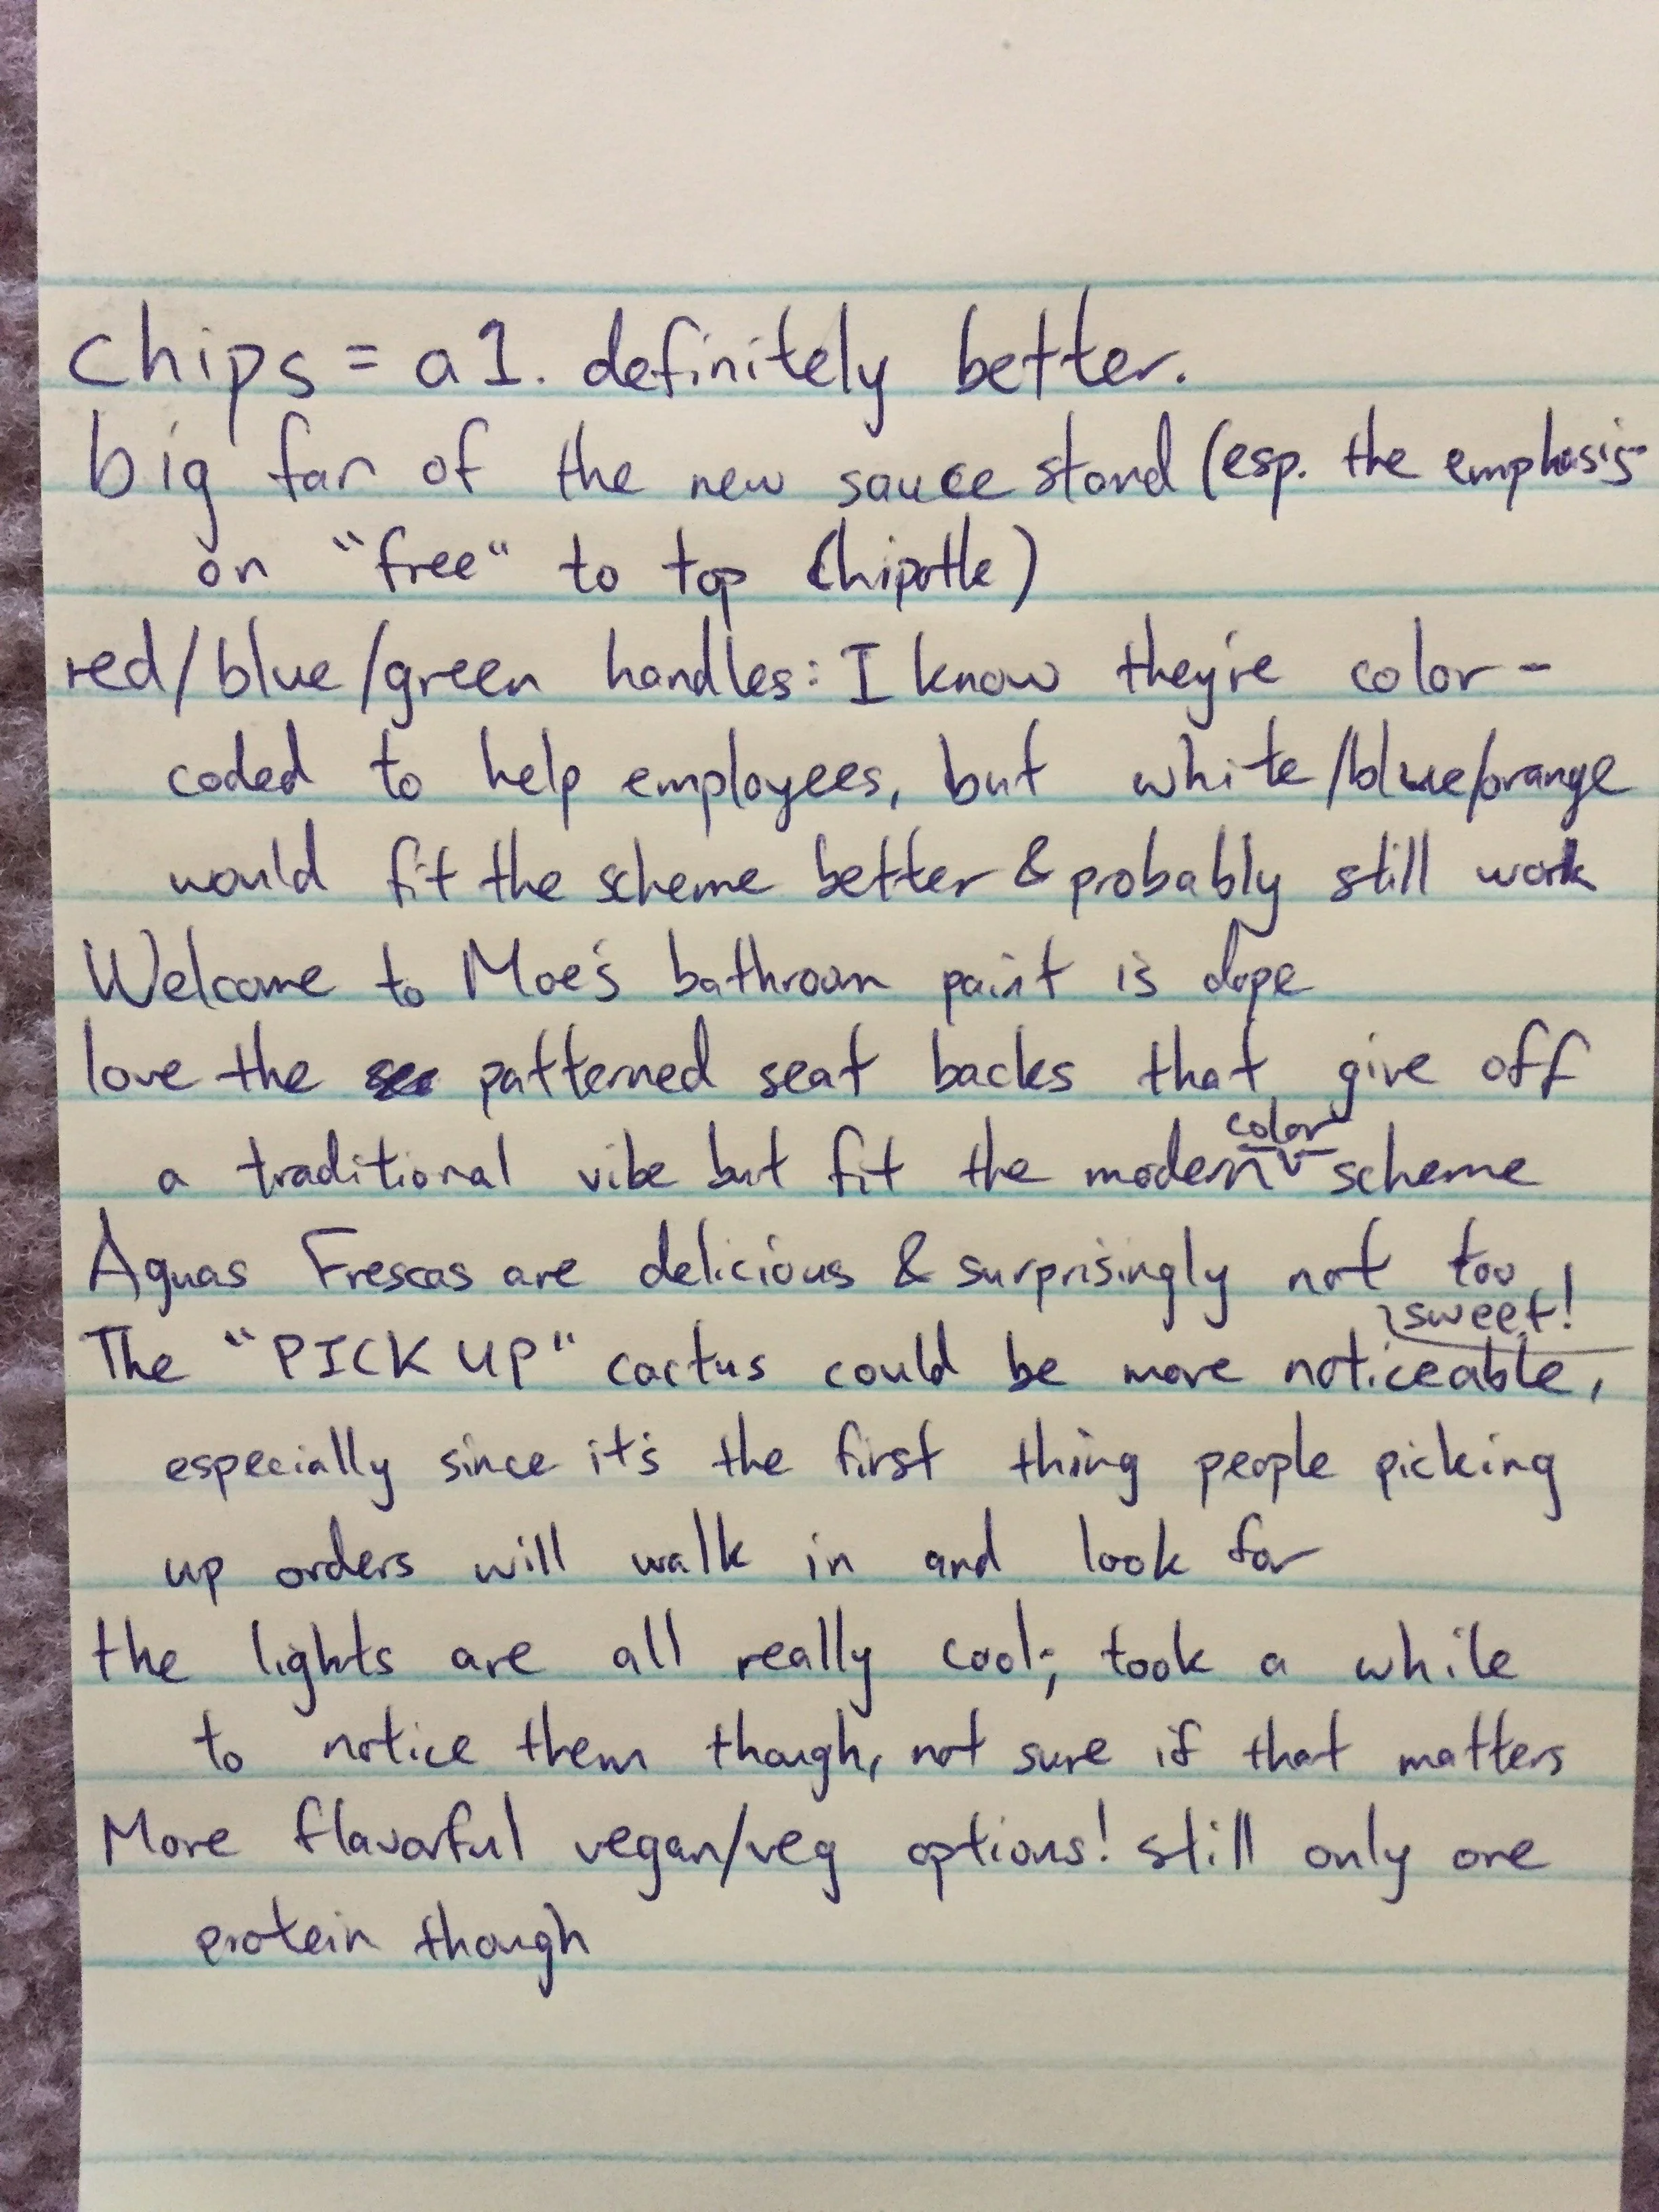 chips = a1. definitely better.
big fan of the new sauce stand (esp. the emphasis
on "free" to top Chipotle)
red/blue/green handles: I know they're color-
coded to help employees, but white/blue/orange
would fit the scheme better & probably still work
Welcome to Moe's bathroom paint is dope
love the patterned seat backs that give off
a traditional vibe but fit the modern color scheme
Aguas Frescas are delicious & surprisingly not too
sweet!
The "PICK UP" cactus could be more noticeable,
especially since it's the first thing people picking
up orders will walk in and look for
the lights are all really cool; took a while
to notice them though, not sure if that matters
More flavorful vegan/veg options! still only one
protein though